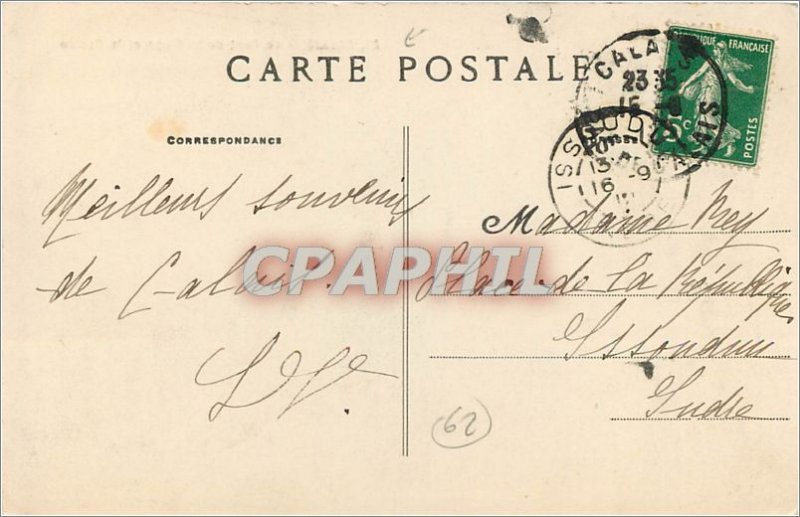 CARTE POSTALE
CORRESPONDANCE
Meilleurs souvenirs
de Calais.
Madame Rey
Place de la République
Issoudun
Indre
62
CPAPHIL
REPUBLIQUE FRANÇAISE
5c
POSTES
CALAIS
23 35
ISSOUDUN
13
16 - 9